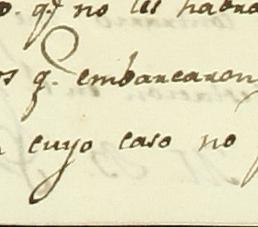 o. q.e no les habra
os q.e embarcaron
cuyo caso no